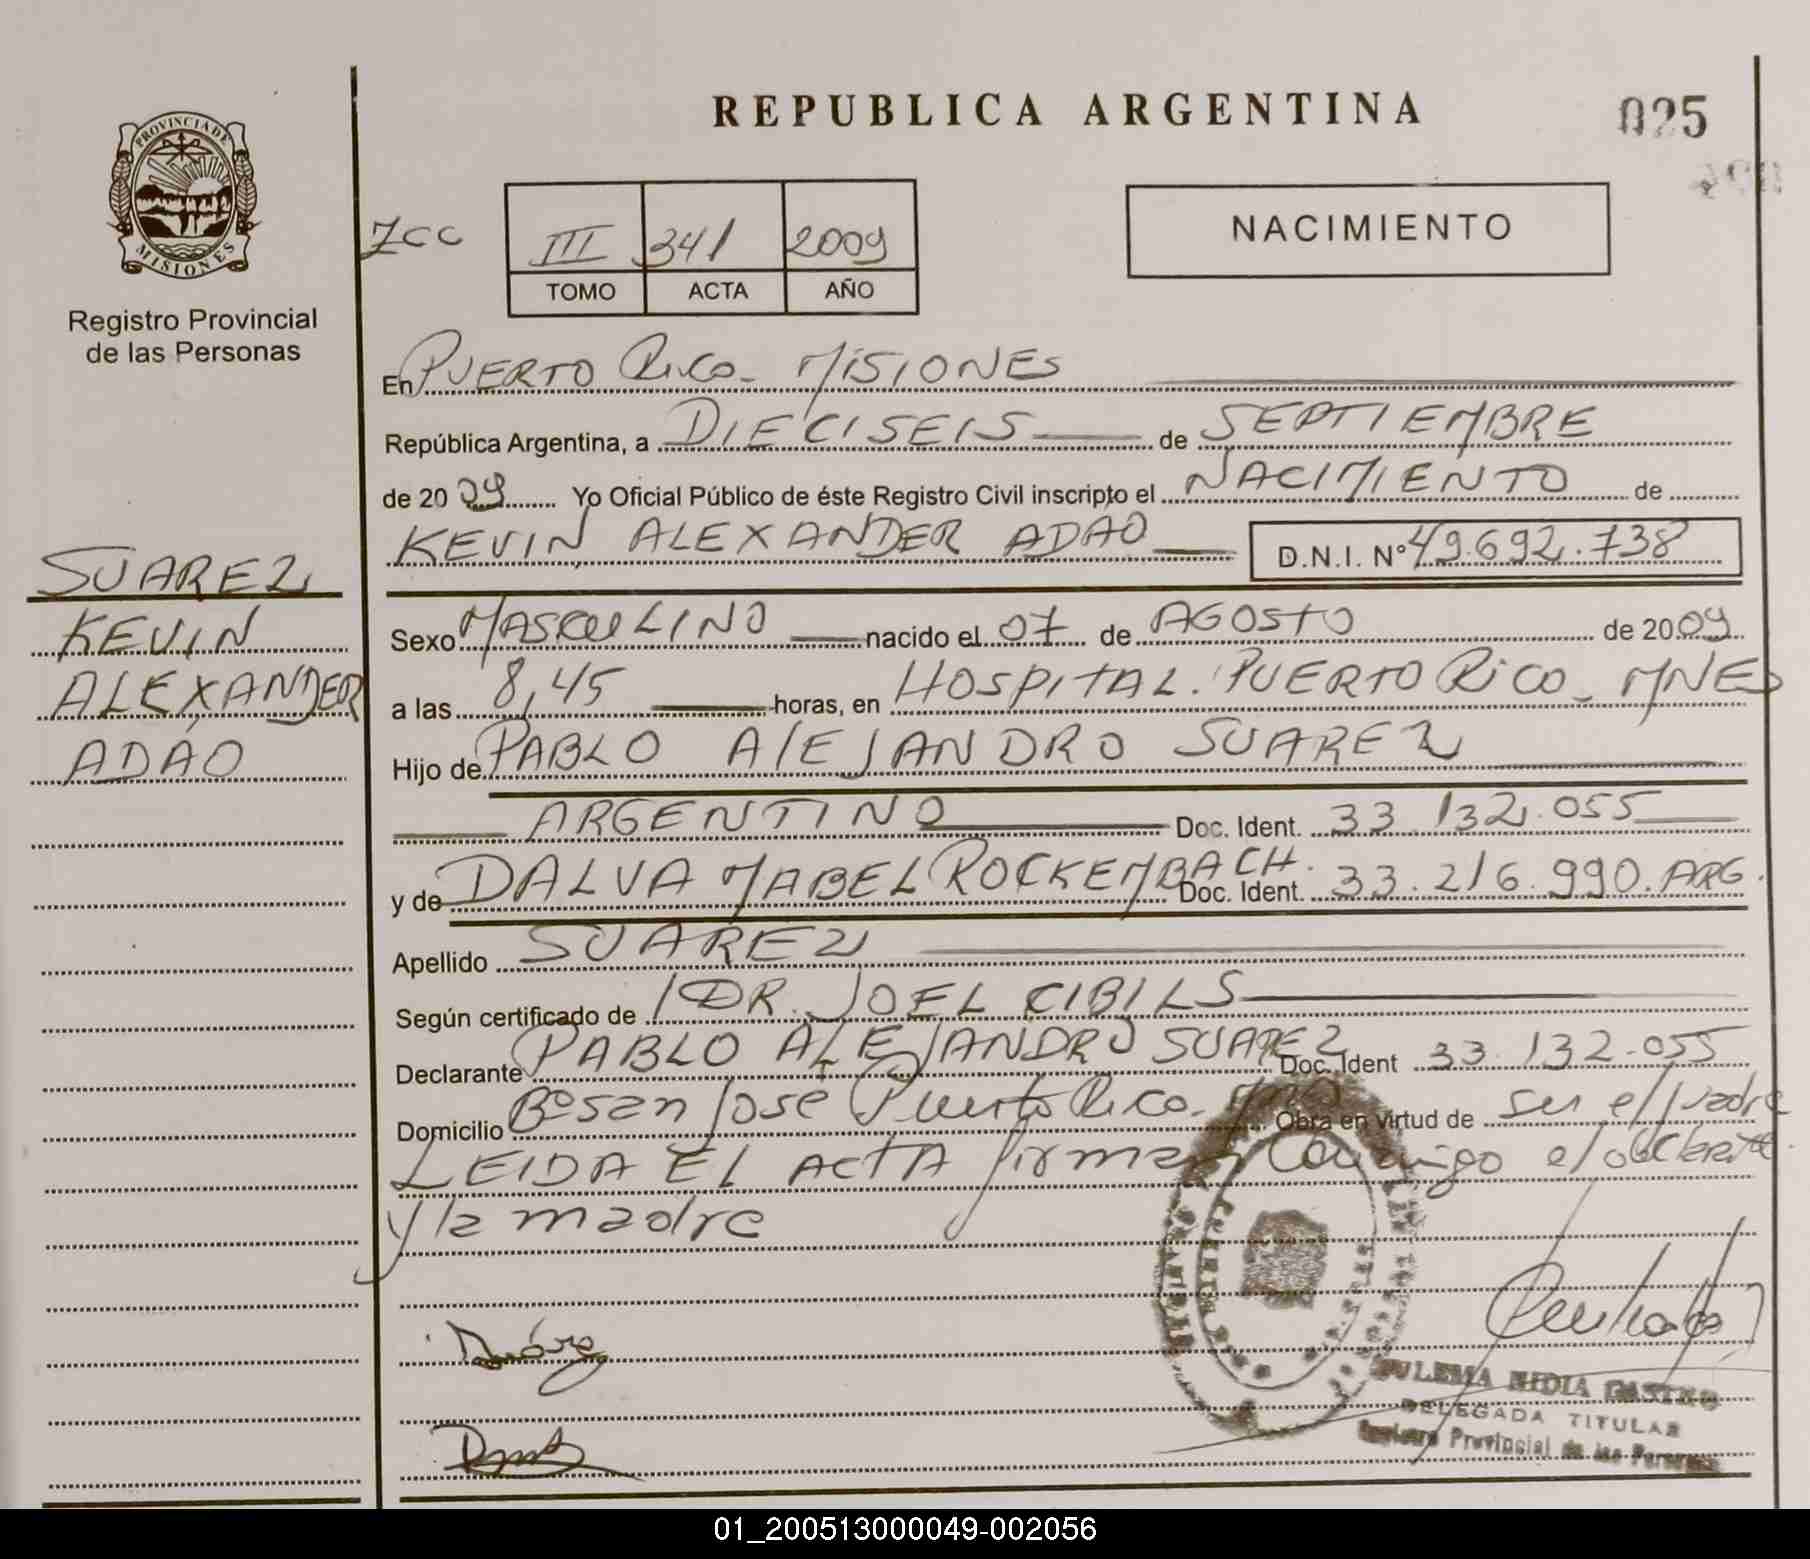 REPUBLICA ARGENTINA
025
PROVINCIA DE
MISIONES
Registro Provincial
de las Personas
III 341 2009
TOMO ACTA AÑO
NACIMIENTO
En PUERTO RICO - MISIONES
República Argentina, a DIECISEIS de SEPTIEMBRE
de 2009 Yo Oficial Público de éste Registro Civil inscripto el NACIMIENTO de
KEVIN ALEXANDER ADAO D.N.I. Nº 49.692.738
SUAREZ
KEVIN
ALEXANDER
ADAO
Sexo MASCULINO nacido el 07 de AGOSTO de 2009
a las 8,45 horas, en HOSPITAL. PUERTO RICO - MNES
Hijo de PABLO ALEJANDRO SUAREZ
ARGENTINO Doc. Ident. 33.132.055
y de DALVA MABEL ROCKEMBACH. Doc. Ident. 33.216.990. ARG.
Apellido SUAREZ
Según certificado de DR. JOEL CIBILS
Declarante PABLO ALEJANDRO SUAREZ Doc. Ident 33.132.055
Domicilio Bº San José Puerto Rico. Obra en virtud de ser el padre
LEIDA EL ACTA firman conmigo el declarante
y la madre
NIDIA CASTRO
DELEGADA TITULAR
Registro Provincial de las Personas
01_200513000049-002056